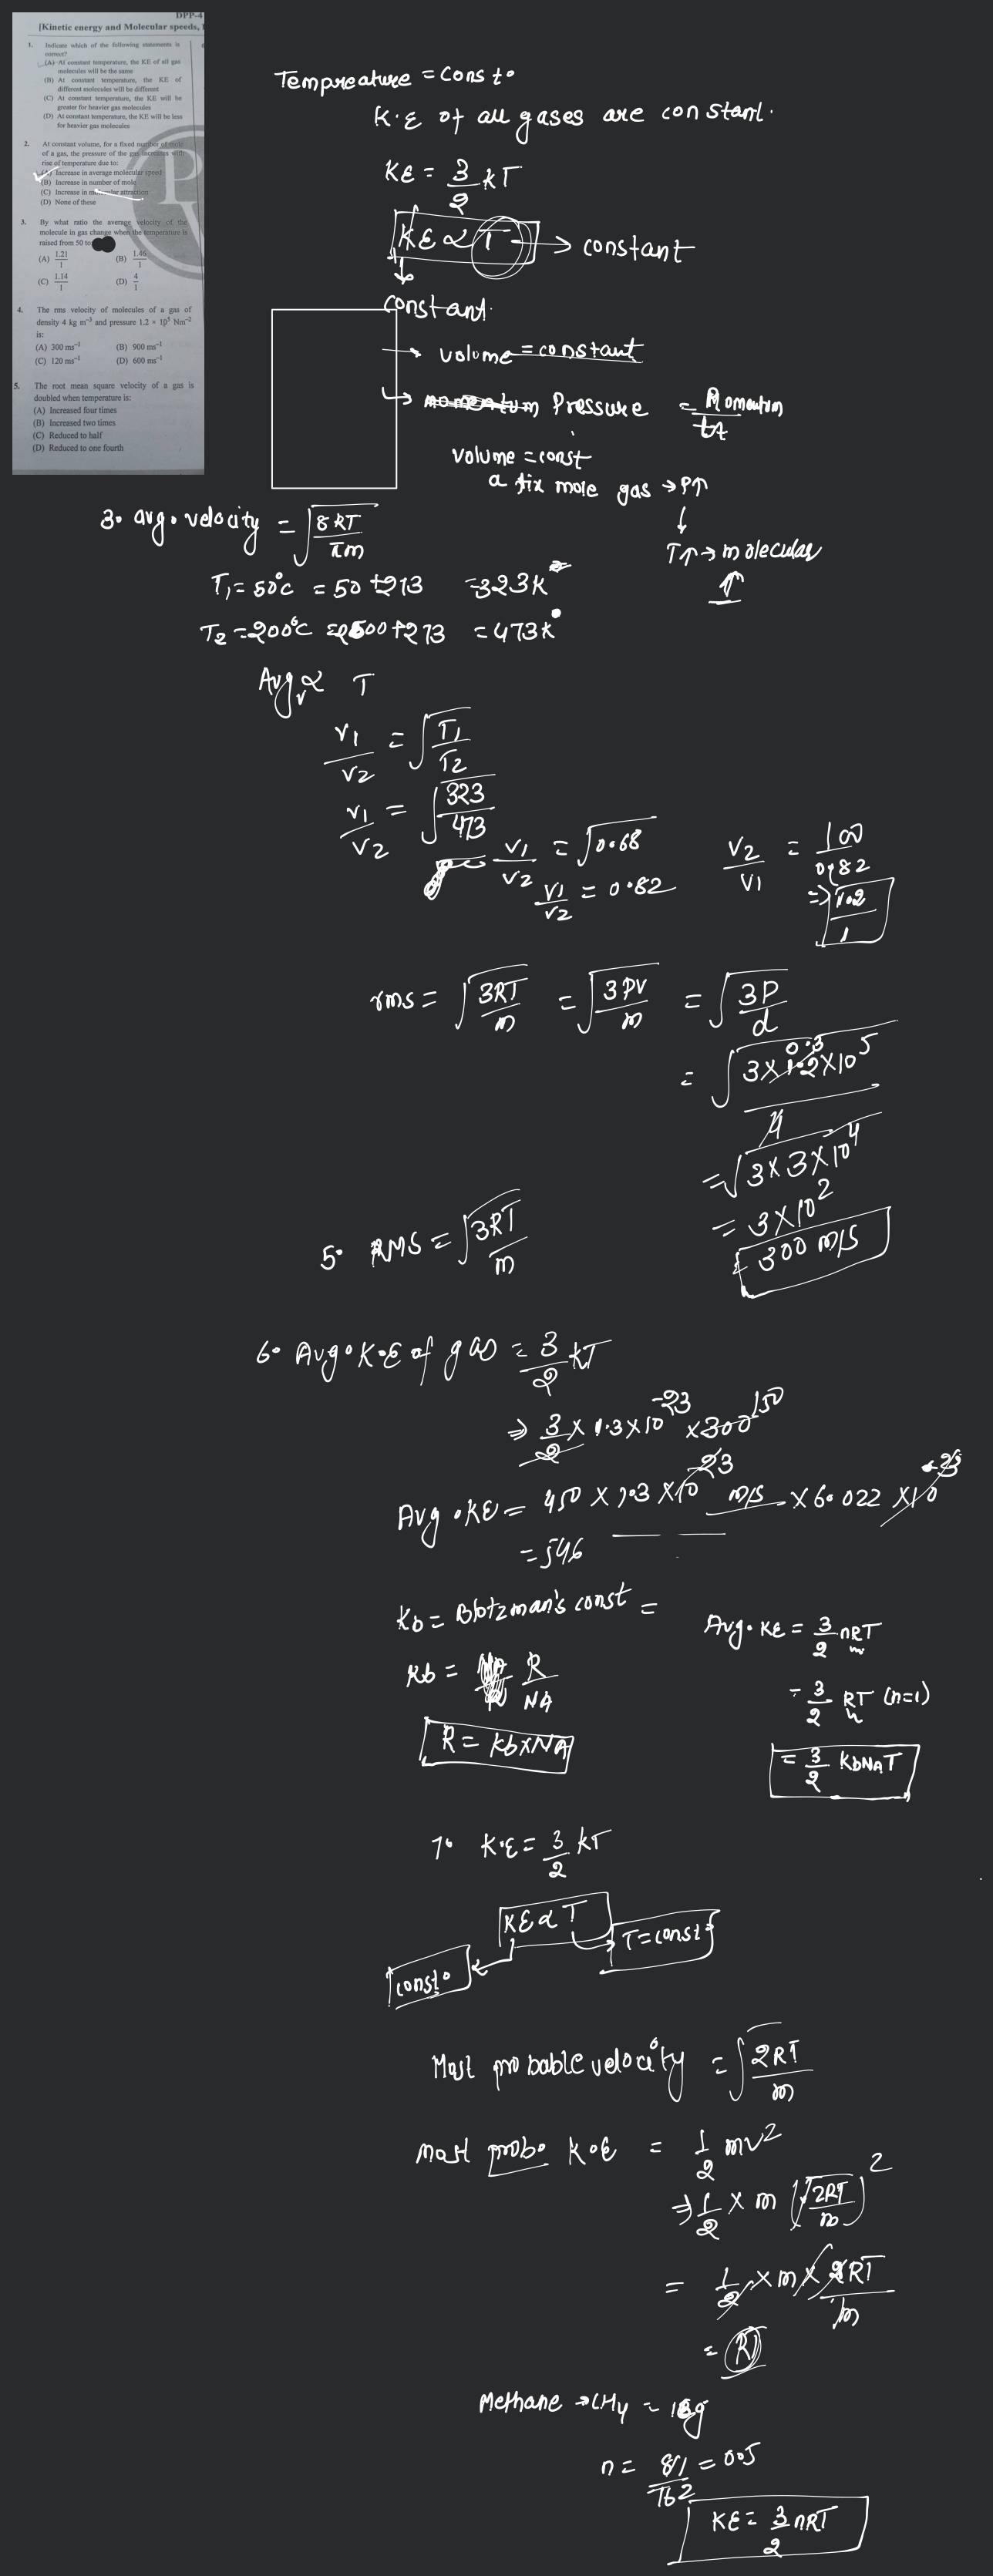 DPP-4
[Kinetic energy and Molecular speeds,
1. Indicate which of the following statements is
correct?
(A) At constant temperature, the KE of all gas
molecules will be the same
(B) At constant temperature, the KE of
different molecules will be different
(C) At constant temperature, the KE will be
greater for heavier gas molecules
(D) At constant temperature, the KE will be less
for heavier gas molecules
2. At constant volume, for a fixed number of mole
of a gas, the pressure of the gas increases with
rise of temperature due to:
(A) Increase in average molecular speed
(B) Increase in number of mole
(C) Increase in molecular attraction
(D) None of these
3. By what ratio the average velocity of the
molecule in gas change when the temperature is
raised from 50 to
(A) 1.21/1 (B) 1.46/1
(C) 1.14/1 (D) 4/1
4. The rms velocity of molecules of a gas of
density 4 kg m⁻³ and pressure 1.2 × 10⁵ Nm⁻²
is:
(A) 300 ms⁻¹ (B) 900 ms⁻¹
(C) 120 ms⁻¹ (D) 600 ms⁻¹
5. The root mean square velocity of a gas is
doubled when temperature is:
(A) Increased four times
(B) Increased two times
(C) Reduced to half
(D) Reduced to one fourth
Tempreature = const.
K.E of all gases are constant.
KE = 3/2 kT
KE ∝ T → constant
constant.
→ volume = constant
→ momentum Pressure = Momentum/
volume = const
a fix mole gas → P↑
↓
T↑ → molecular
↑
3. avg. velocity = √8RT/πm
T₁ = 50°C = 50 + 273 = 323K
T₂ = 200°C = 200 + 273 = 473K
Avg v ∝ T
v₁/v₂ = √T₁/T₂
v₁/v₂ = √323/473
v₁/v₂ = √0.68
v₁/v₂ = 0.82
v₂/v₁ = 100/0.82
⇒ 1.2/1
rms = √3RT/m = √3PV/m = √3P/d
= √3×1.2×10⁵/4 0.3
= √3×3×10⁴
= 3×10²
= 300 m/s
5. RMS = √3RT/m
6. Avg. K.E of gas = 3/2 kT
⇒ 3/2 × 1.3×10⁻²³ × 300 150
Avg. KE = 450 × 1.3 × 10⁻²³ m/s × 6.022 × 10²³
= 546
Kb = Blotzman's const =
Kb = R/NA
R = Kb×NA
Avg. KE = 3/2 nRT
= 3/2 RT (n=1)
= 3/2 KbNAT
7. K.E = 3/2 kT
KE ∝ T
T = const
const.
Most probable velocity = √2RT/m
Most prob. K.E = 1/2 mv²
⇒ 1/2 × m (√2RT/m)²
= 1/2 × m × 2RT/m
= RT
Methane → CH₄ = 16g
n = 8/16 = 0.5
KE = 3/2 nRT